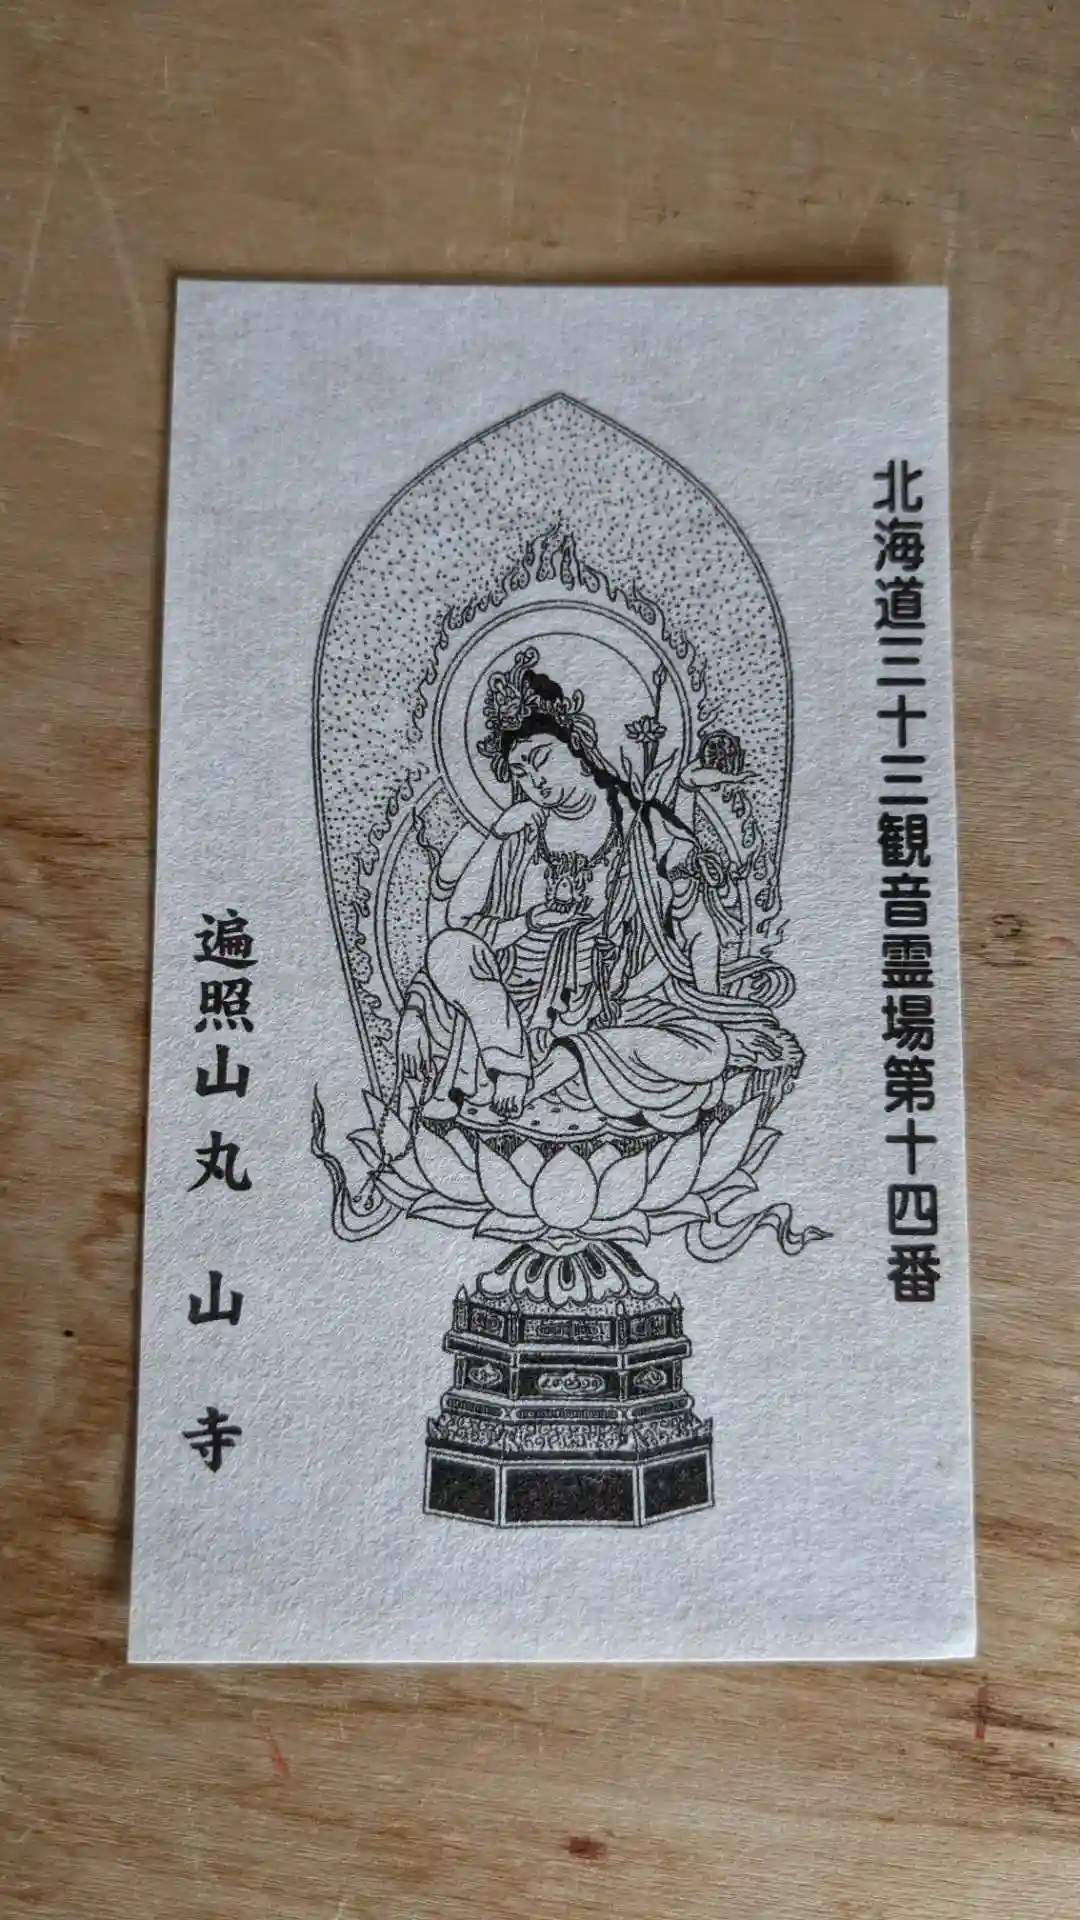 北海道三十三観音霊場第十四番
遍照山丸山寺